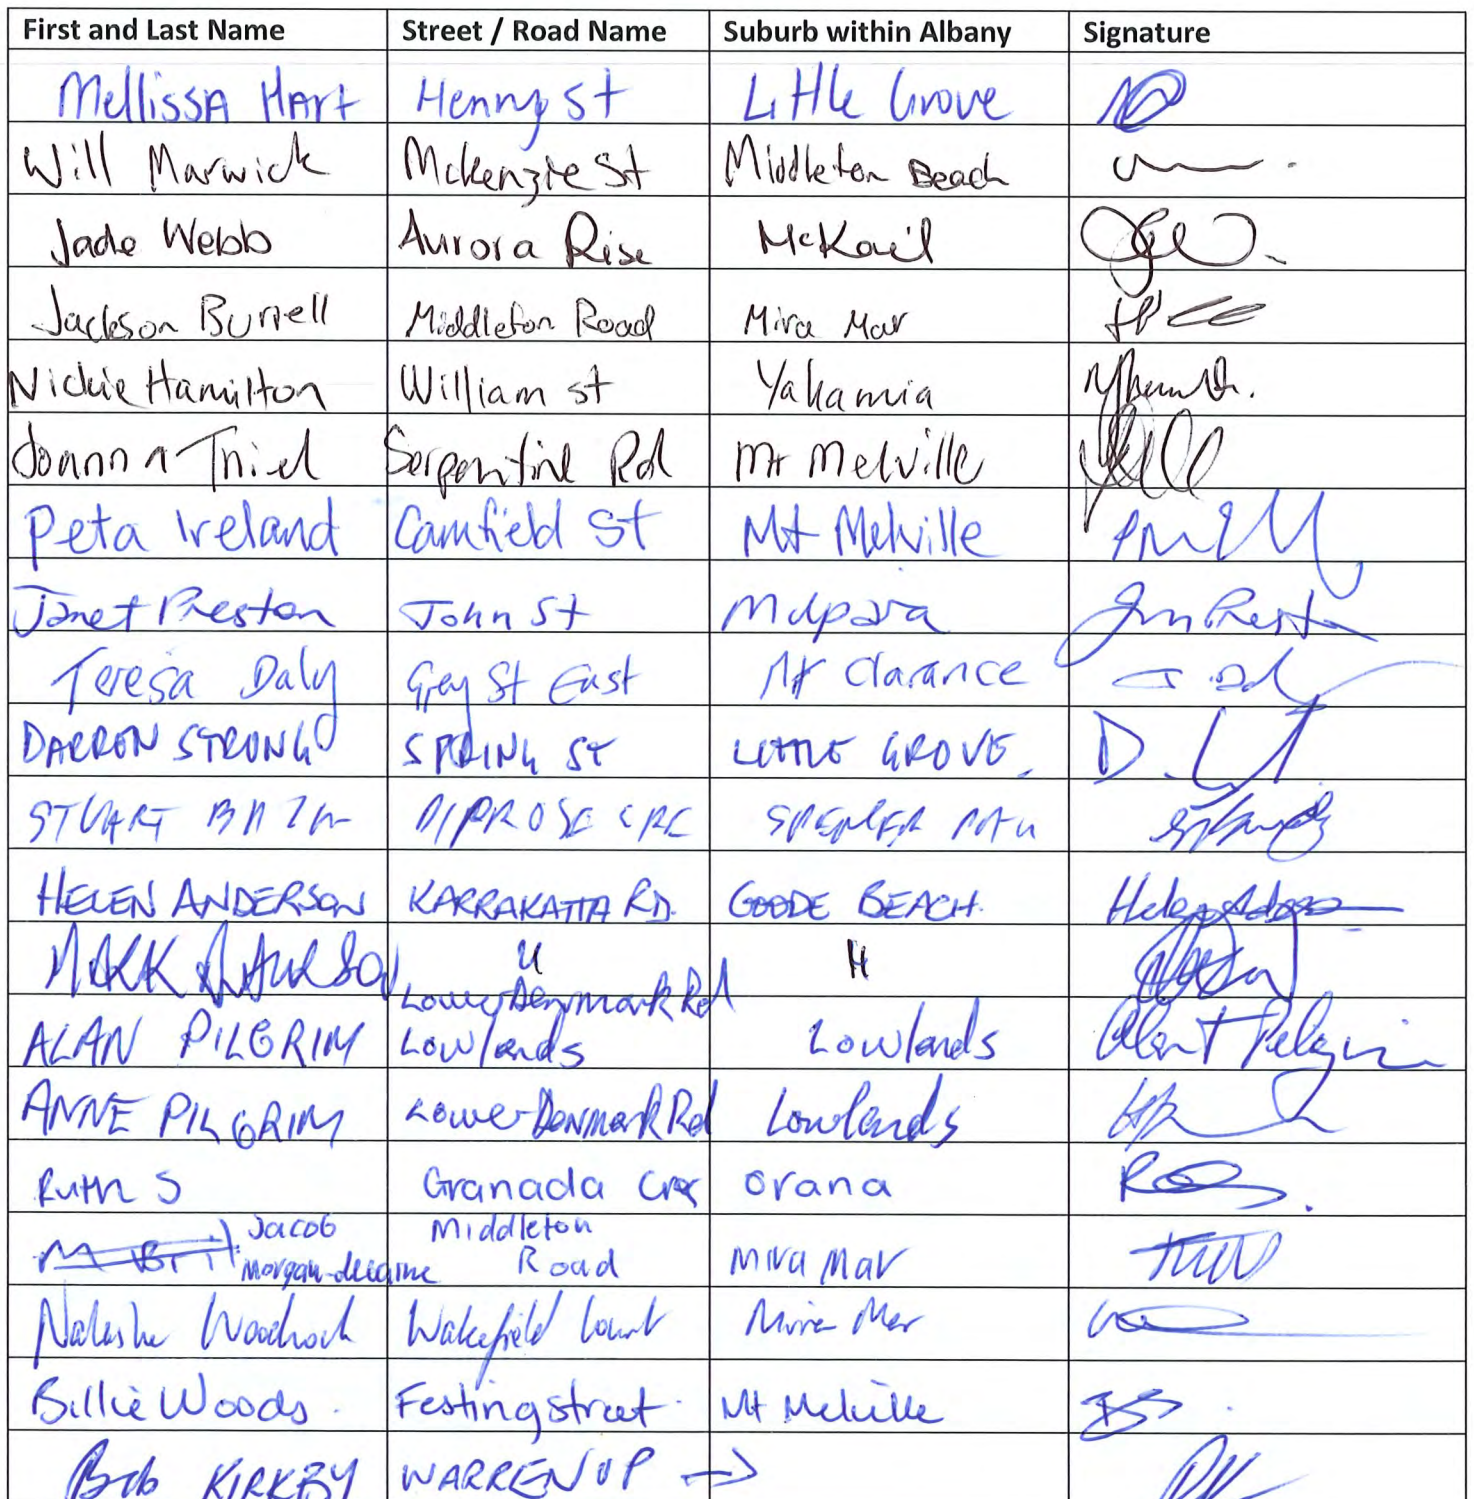 First and Last Name Street / Road Name Suburb within Albany Signature
Mellissa Hart Henry St Little Grove
Will Marwick McKenzie St Middleton Beach
Jade Webb Aurora Rise McKail
Jackson Burrell Middleton Road Mira Mar
Nickie Hamilton William St Yakamia
Joanna Thiel Serpentine Rd Mt Melville
Peta Ireland Camfield St Mt Melville
Janet Preston John St Milpara
Teresa Daly Grey St East Mt Clarance
DARRON STRONG SPRING ST LITTLE GROVE.
STUART DIPROSE CRE SPENCER PARK
HELEN ANDERSON KARRAKATTA RD. GOODE BEACH.
MARK ANDERSON " "
Lower Denmark Rd
ALAN PILGRIM Lowlands Lowlands
ANNE PILGRIM Lower Denmark Rd Lowlands
Ruth S Granada Cres Orana
Jacob Middleton
Morgan-decaine Road Mira Mar
Natasha Woodcock Wakefield Court Mira Mar
Billie Woods. Festing street. Mt Melville
Bob KIRKBY WARRENUP →